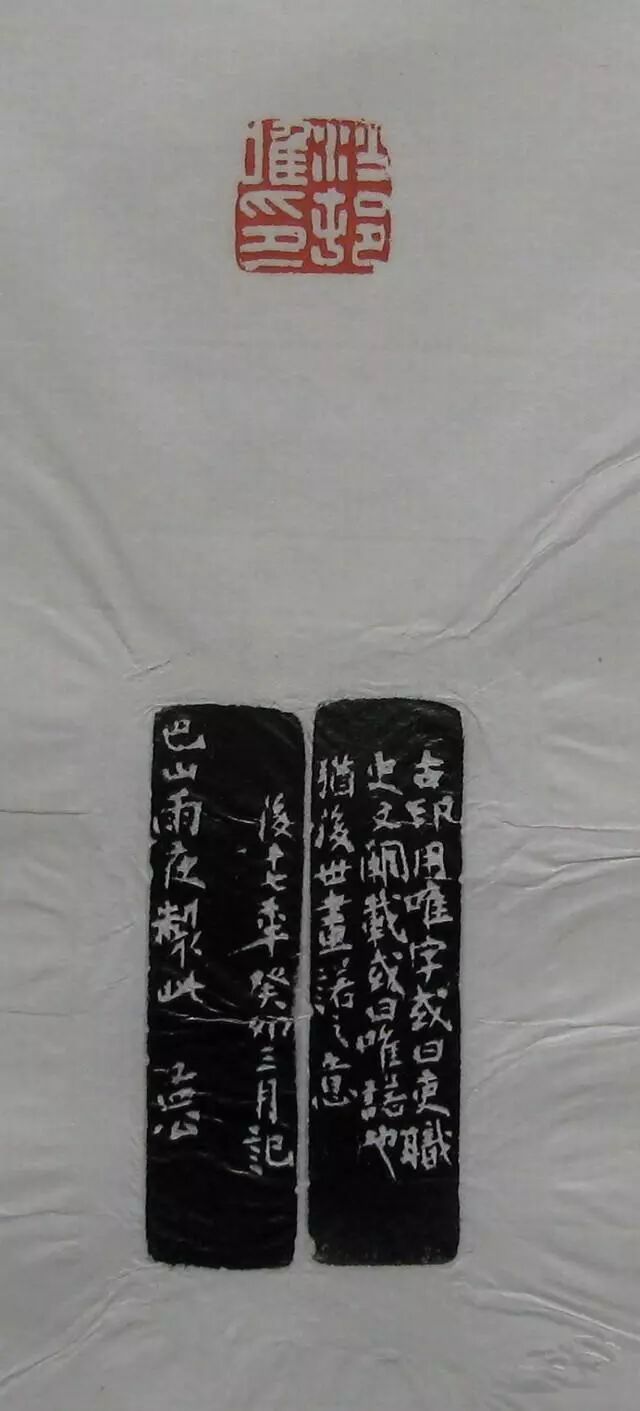 沙邨
唯印
古印用唯字或曰吏職
史文闕載或曰唯諾也
猶後世畫諾之意
後十七年癸卯三月記
巴山雨夜製此